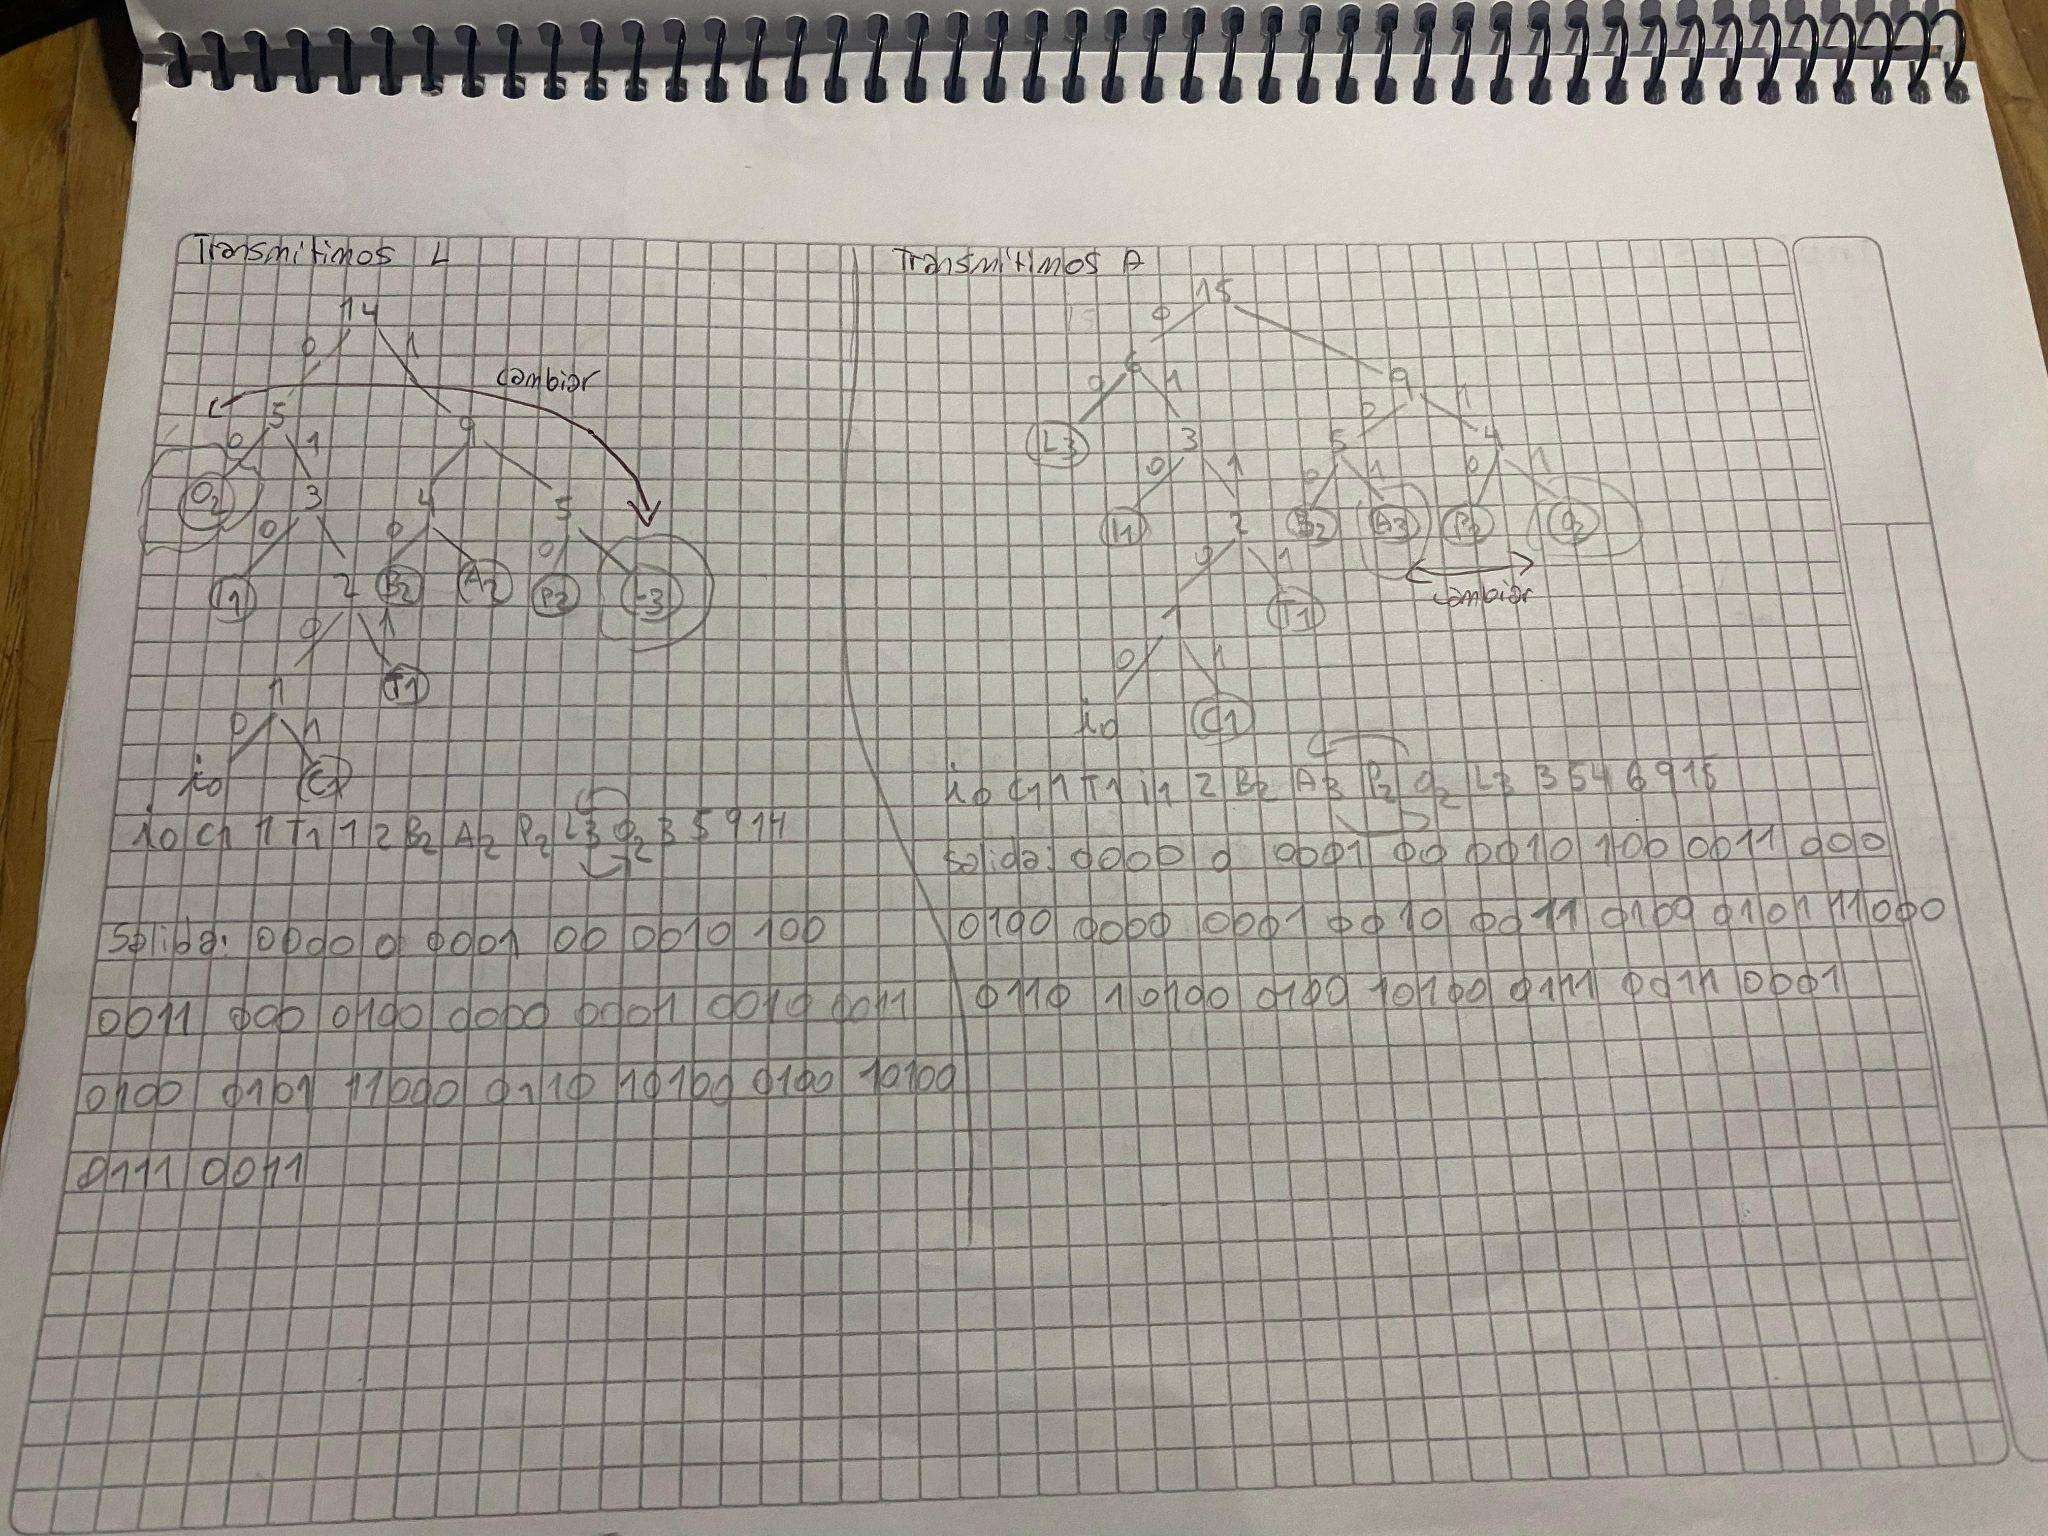 Transmitimos L
14
0 1
cambiar
5 9
0 1
O2 3 4 5
0 0 0
I1 2 B2 A2 P2 L3
0 1
1 T1
0 1
io C1
io C1 1 T1 1 2 B2 A2 P2 L3 O2 3 5 9 14
Salida: 0000 0 0001 00 0010 100
0011 000 0100 0000 0001 0010 0011
0100 0101 11000 0110 10100 0100 10100
0111 0011
Transmitimos A
15
0
6 9
0 1 0 1
L3 3 5 4
0 1 0 1 0 1
I1 2 B2 A3 P2 O2
0 1
cambiar
1 T1
0 1
io C1
io C1 1 T1 i1 2 B2 A3 P2 O2 L3 3 5 4 6 9 15
Salida: 0000 0 0001 00 0010 100 0011 000
0100 0000 0001 0010 0011 0100 0101 11000
0110 10100 0100 10100 0111 0011 0001